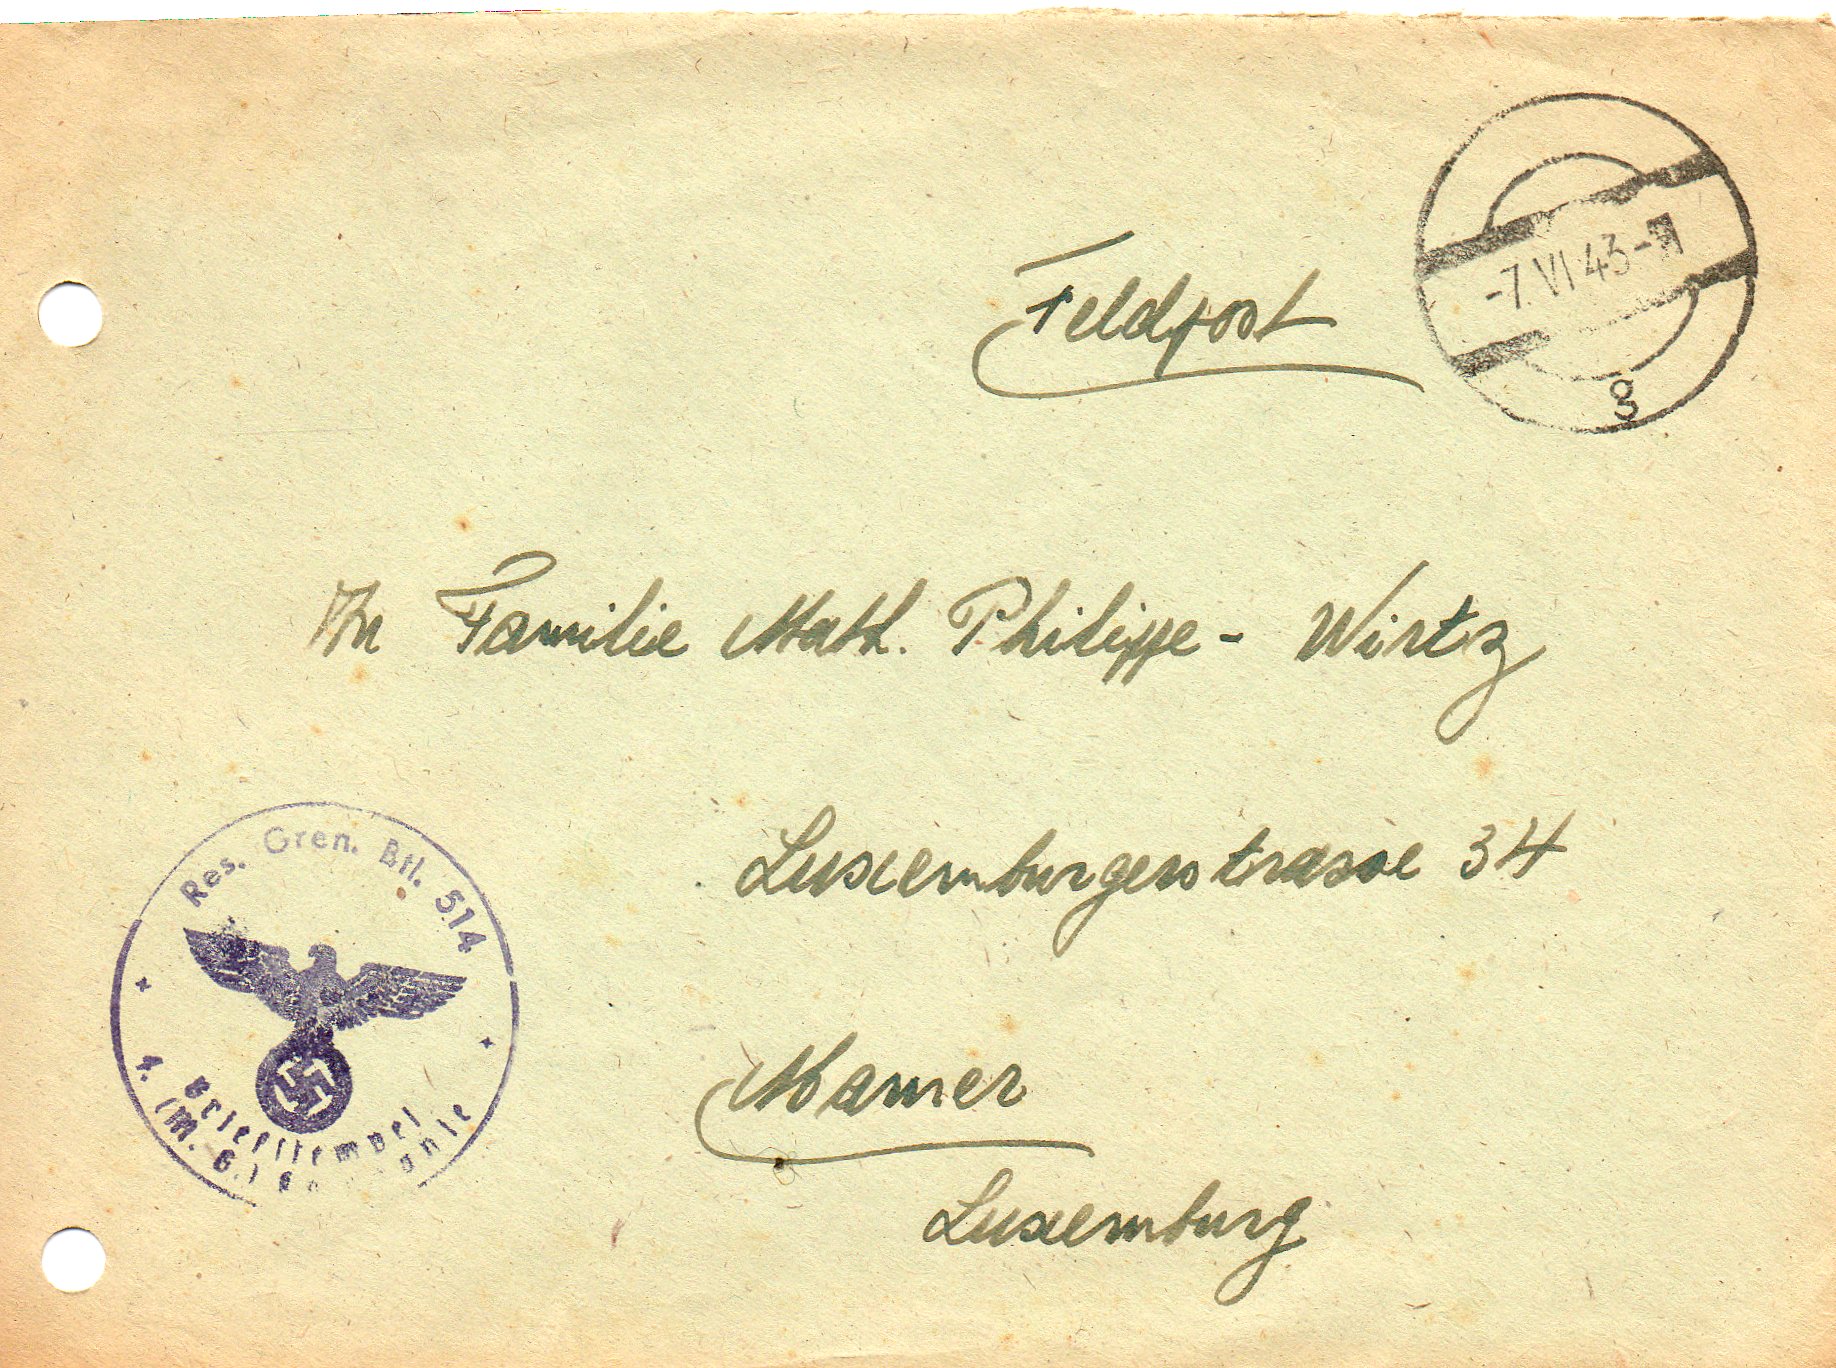 -7.VI.43-
g
Feldpost
An Familie Math. Philippe - Wirtz
Luxemburgerstrasse 34
Mamer
Luxemburg
Res. Gren. Btl. 514
Briefstempel
4. (M. G.)